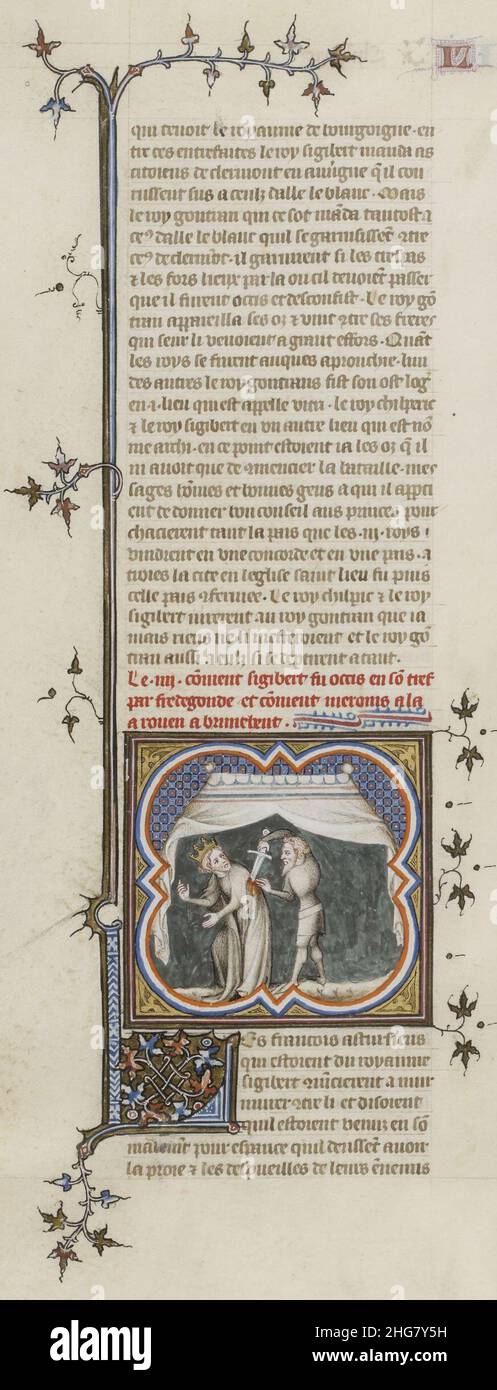 L
qui tenoit le royaume de bourgoigne. en
tre ces entrefaites le roy sigibert manda as
citoiens de clermont en auuigne q̃ il cou
russent sus a ceulz dalle le blanc. Mais
le roy gontran qui ce sot mãda tantost a
ce⁹ dalle le blanc quil se garnissent ɔtre
ce⁹ de clermõt. il garnirent si les
⁊ les fors lieux par la ou cil deuoient passer
que il furent occis et desconfist. Le roy gõ
tran appareilla ses oz ⁊ vint ɔtre ses freres
qui seur li venoient a grant effors. Quãt
les roys se furent auques aprouchie. lun
des autres le roy gontrans fist son ost log̾
en .i. lieu qui est appelle virn. le roy chilperic
⁊ le roy sigibert en vn autre lieu qui est nõ
me archi. en ce point estoient ia les oz q̃ il
ni auoit que de ɔmencier la bataille. mes
sages bõnes et bonnes gens a qui il apptĩ
ent de donner bon conseil aus princes pour
chacierent tant la pais que les .iij. roys
vindrent en vne concorde et en vne pais. a
troies la cite en leglise saint lieu fu
celle pais ɔfermee. Le roy chilpic ⁊ le roy
sigibert iurerent au roy gontran que ia
mais riens ne li mefferoient et le roy gõ
tran aussi a eulz si se departirent a tant.
Le .iiij. cõment sigibert fu occis en sõ tref
par fredegonde. et cõment meroueus ala
a rouen a brunehent.
Les francois
qui estoient du royaume
sigibert ɔmencierent a mur
murer ɔtre li et disoient
quil estoient venuz en sõ
mandemẽt pour esperance quil deussent auoir
la proie ⁊ les despueilles de leurs ẽnemis
alamy
Image ID: 2HG7Y5H
www.alamy.com